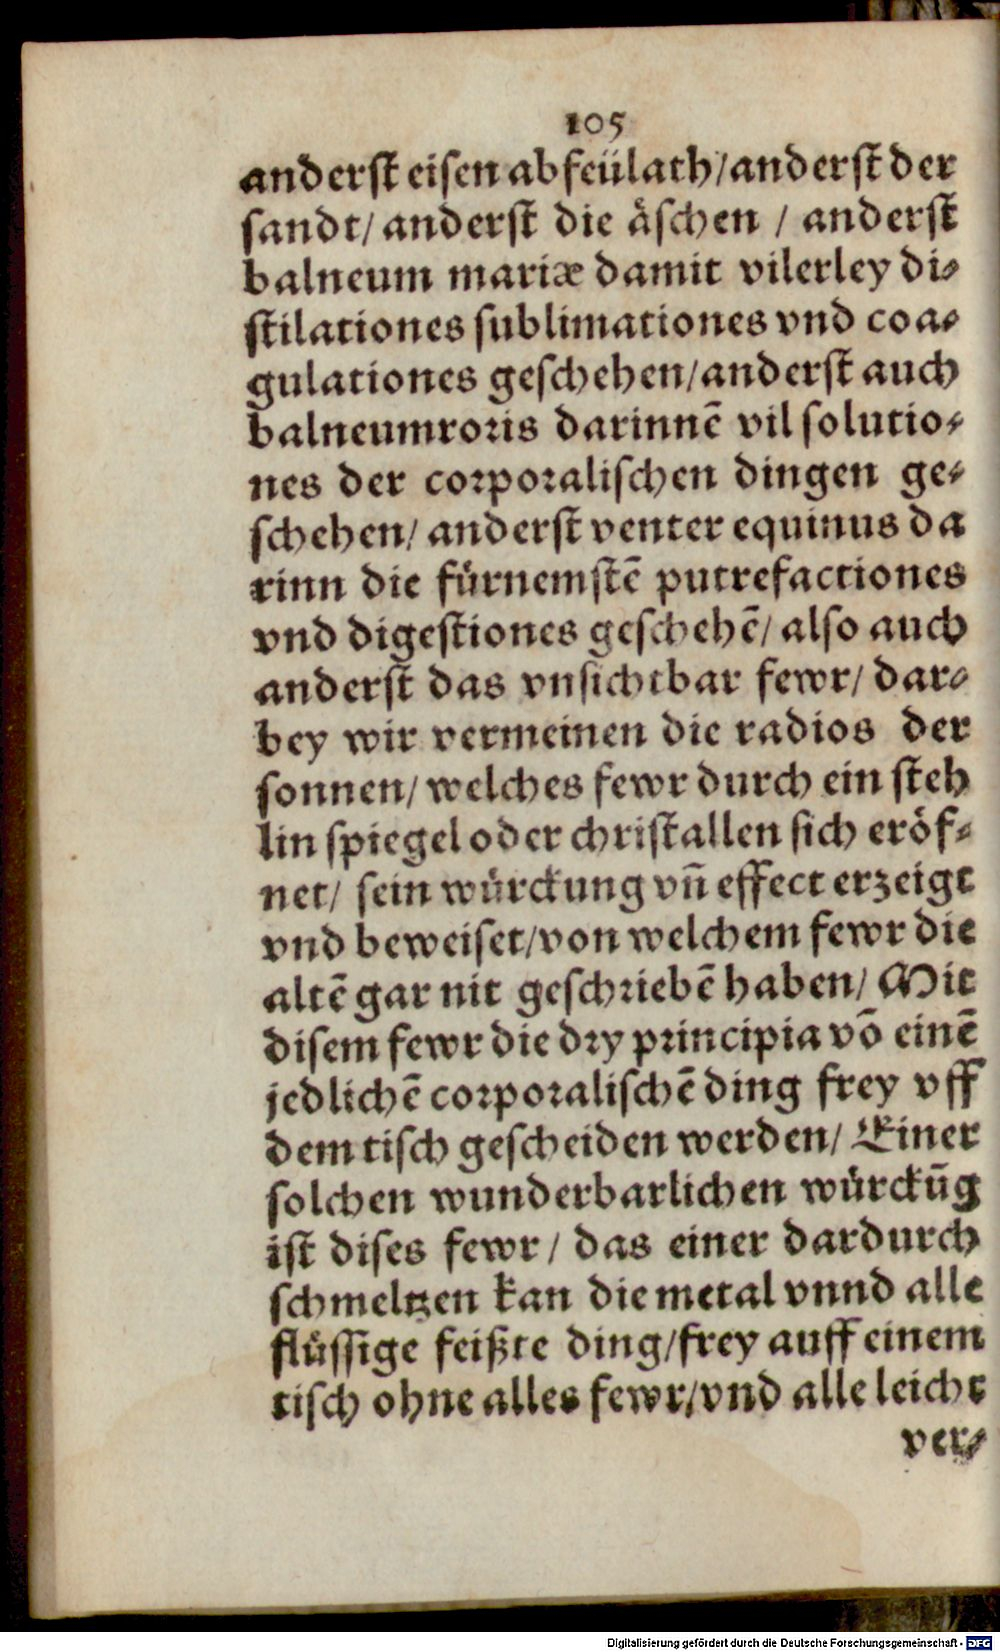 105
anderst eisen abfeülath/anderst der
sandt/ anderst die åschen / anderst
balneum mariæ damit vilerley di-
stilationes sublimationes vnd coa-
gulationes geschehen/anderst auch
balneumroris darinnē vil solutio-
nes der corporalischen dingen ge-
schehen/ anderst venter equinus da
rinn die fürnemstē putrefactiones
vnd digestiones geschehē/ also auch
anderst das vnsichtbar fewr/ dar-
bey wir vermeinen die radios der
sonnen/ welches fewr durch ein steh
lin spiegel oder christallen sich eröf-
net/ sein würckung vñ effect erzeigt
vnd beweiset/von welchem fewr die
altē gar nit geschriebē haben/ Mit
disem fewr die dry principia vō einē
jedlichē corporalischē ding frey vff
dem tisch gescheiden werden/ Einer
solchen wunderbarlichen würckūg
ist dises fewr/ das einer dardurch
schmeltzen kan die metal vnnd alle
flüssige feißte ding/frey auff einem
tisch ohne alles fewr/vnd alle leicht
ver-
Digitalisierung gefördert durch die Deutsche Forschungsgemeinschaft - DFG